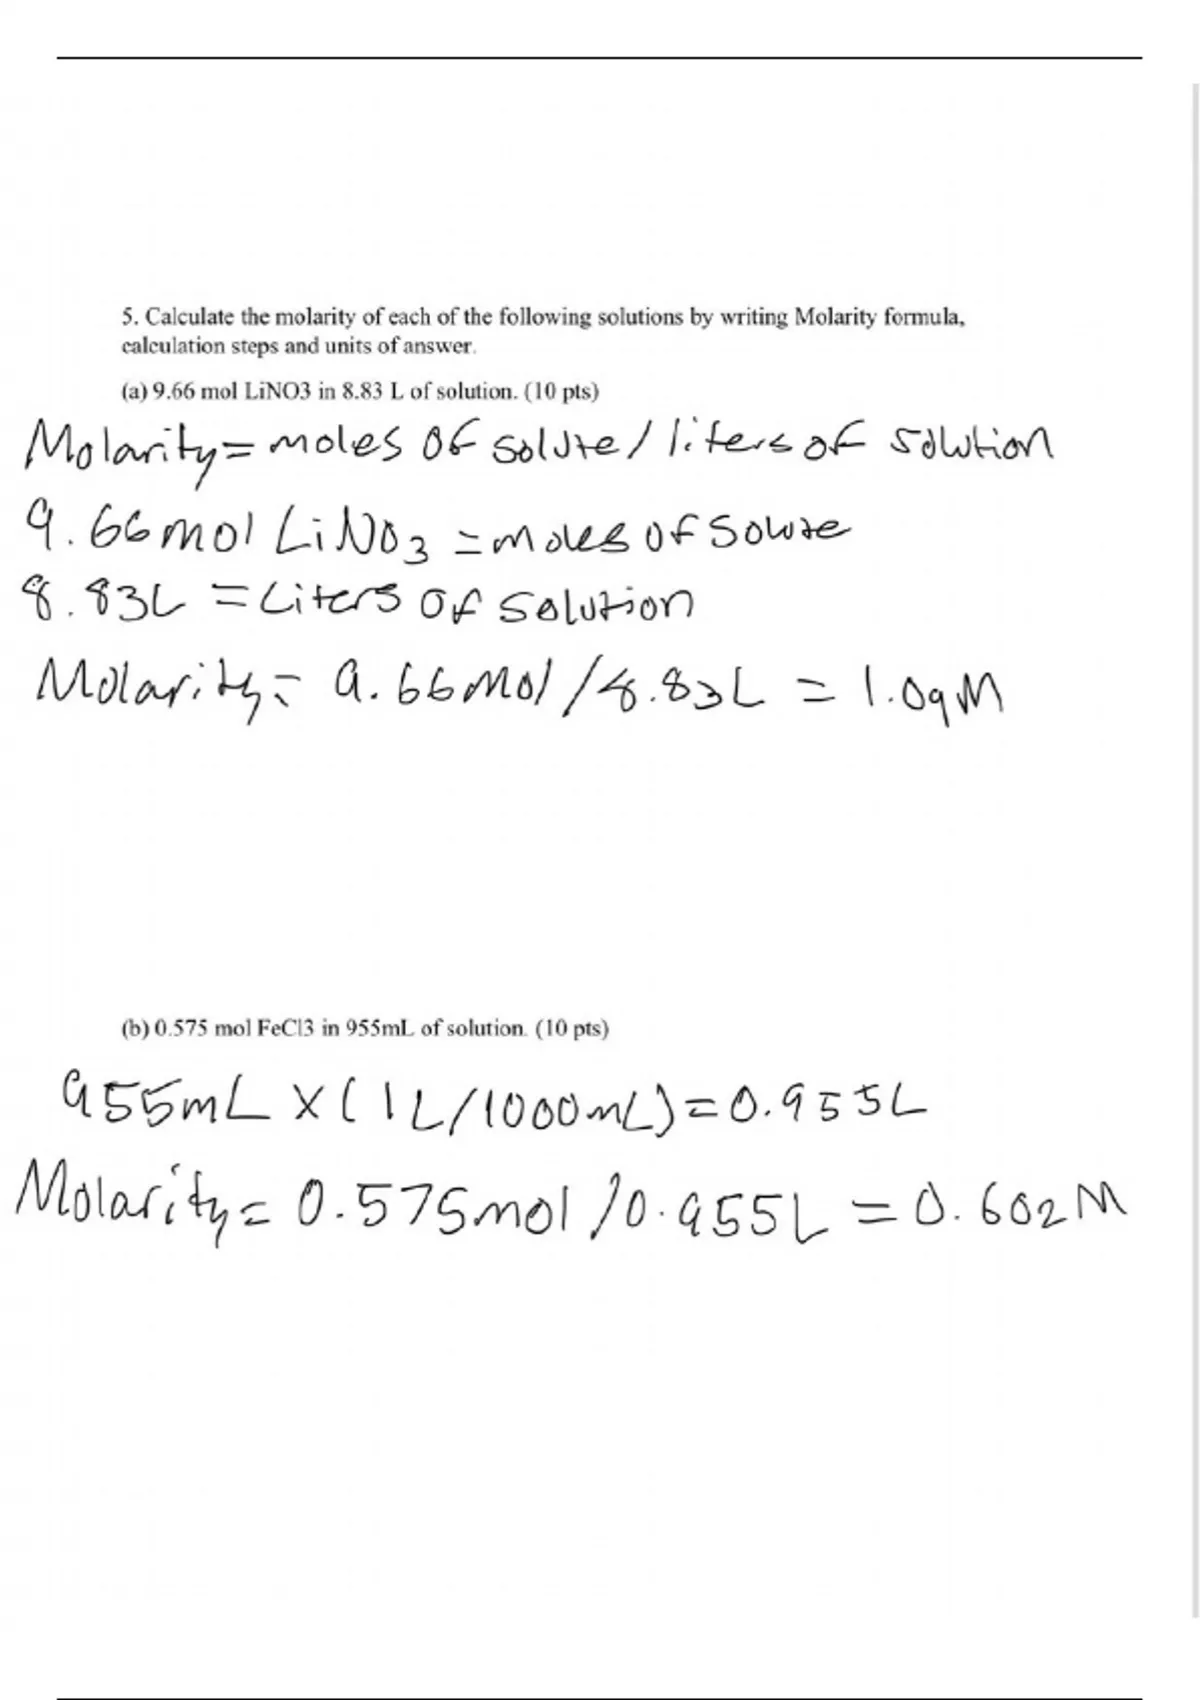 5. Calculate the molarity of each of the following solutions by writing Molarity formula,
calculation steps and units of answer.
(a) 9.66 mol LiNO3 in 8.83 L of solution. (10 pts)
Molarity = moles of solute / liters of solution
9.66 mol LiNO3 = moles of solute
8.83L = Liters of solution
Molarity = 9.66 mol / 8.83L = 1.09M
(b) 0.575 mol FeCl3 in 955mL of solution. (10 pts)
955mL X ( 1L/1000mL) = 0.955L
Molarity = 0.575mol / 0.955L = 0.602M